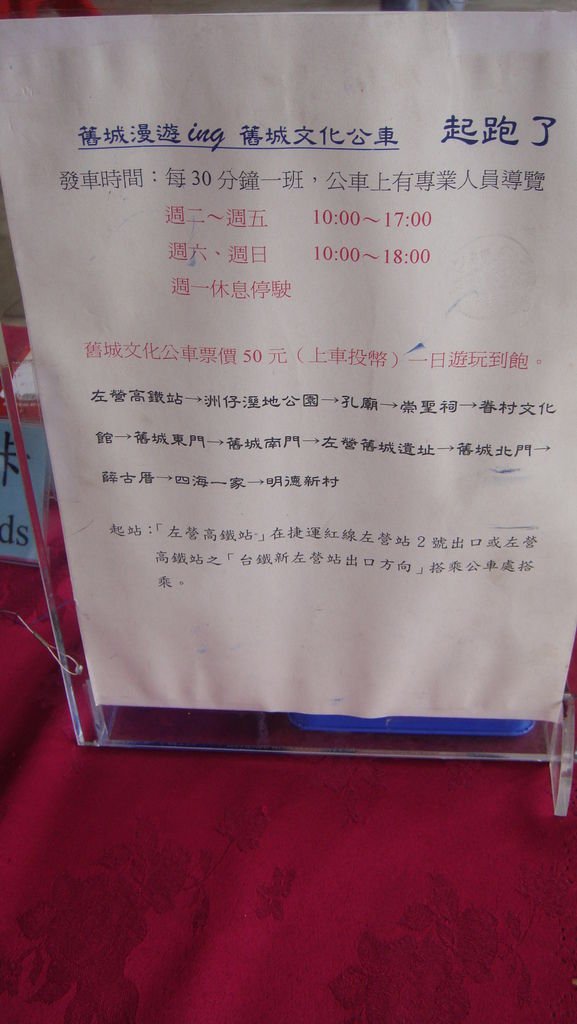 舊城漫遊ing 舊城文化公車 起跑了
發車時間：每30分鐘一班，公車上有專業人員導覽
週二～週五 10:00～17:00
週六、週日 10:00～18:00
週一休息停駛
舊城文化公車票價50元（上車投幣）一日遊玩到飽。
左營高鐵站→洲仔溼地公園→孔廟→崇聖祠→眷村文化
館→舊城東門→舊城南門→左營舊城遺址→舊城北門→
薛古厝→四海一家→明德新村
起站：「左營高鐵站」在捷運紅線左營站2號出口或左營
高鐵站之「台鐵新左營站出口方向」搭乘公車處搭
乘。
ds